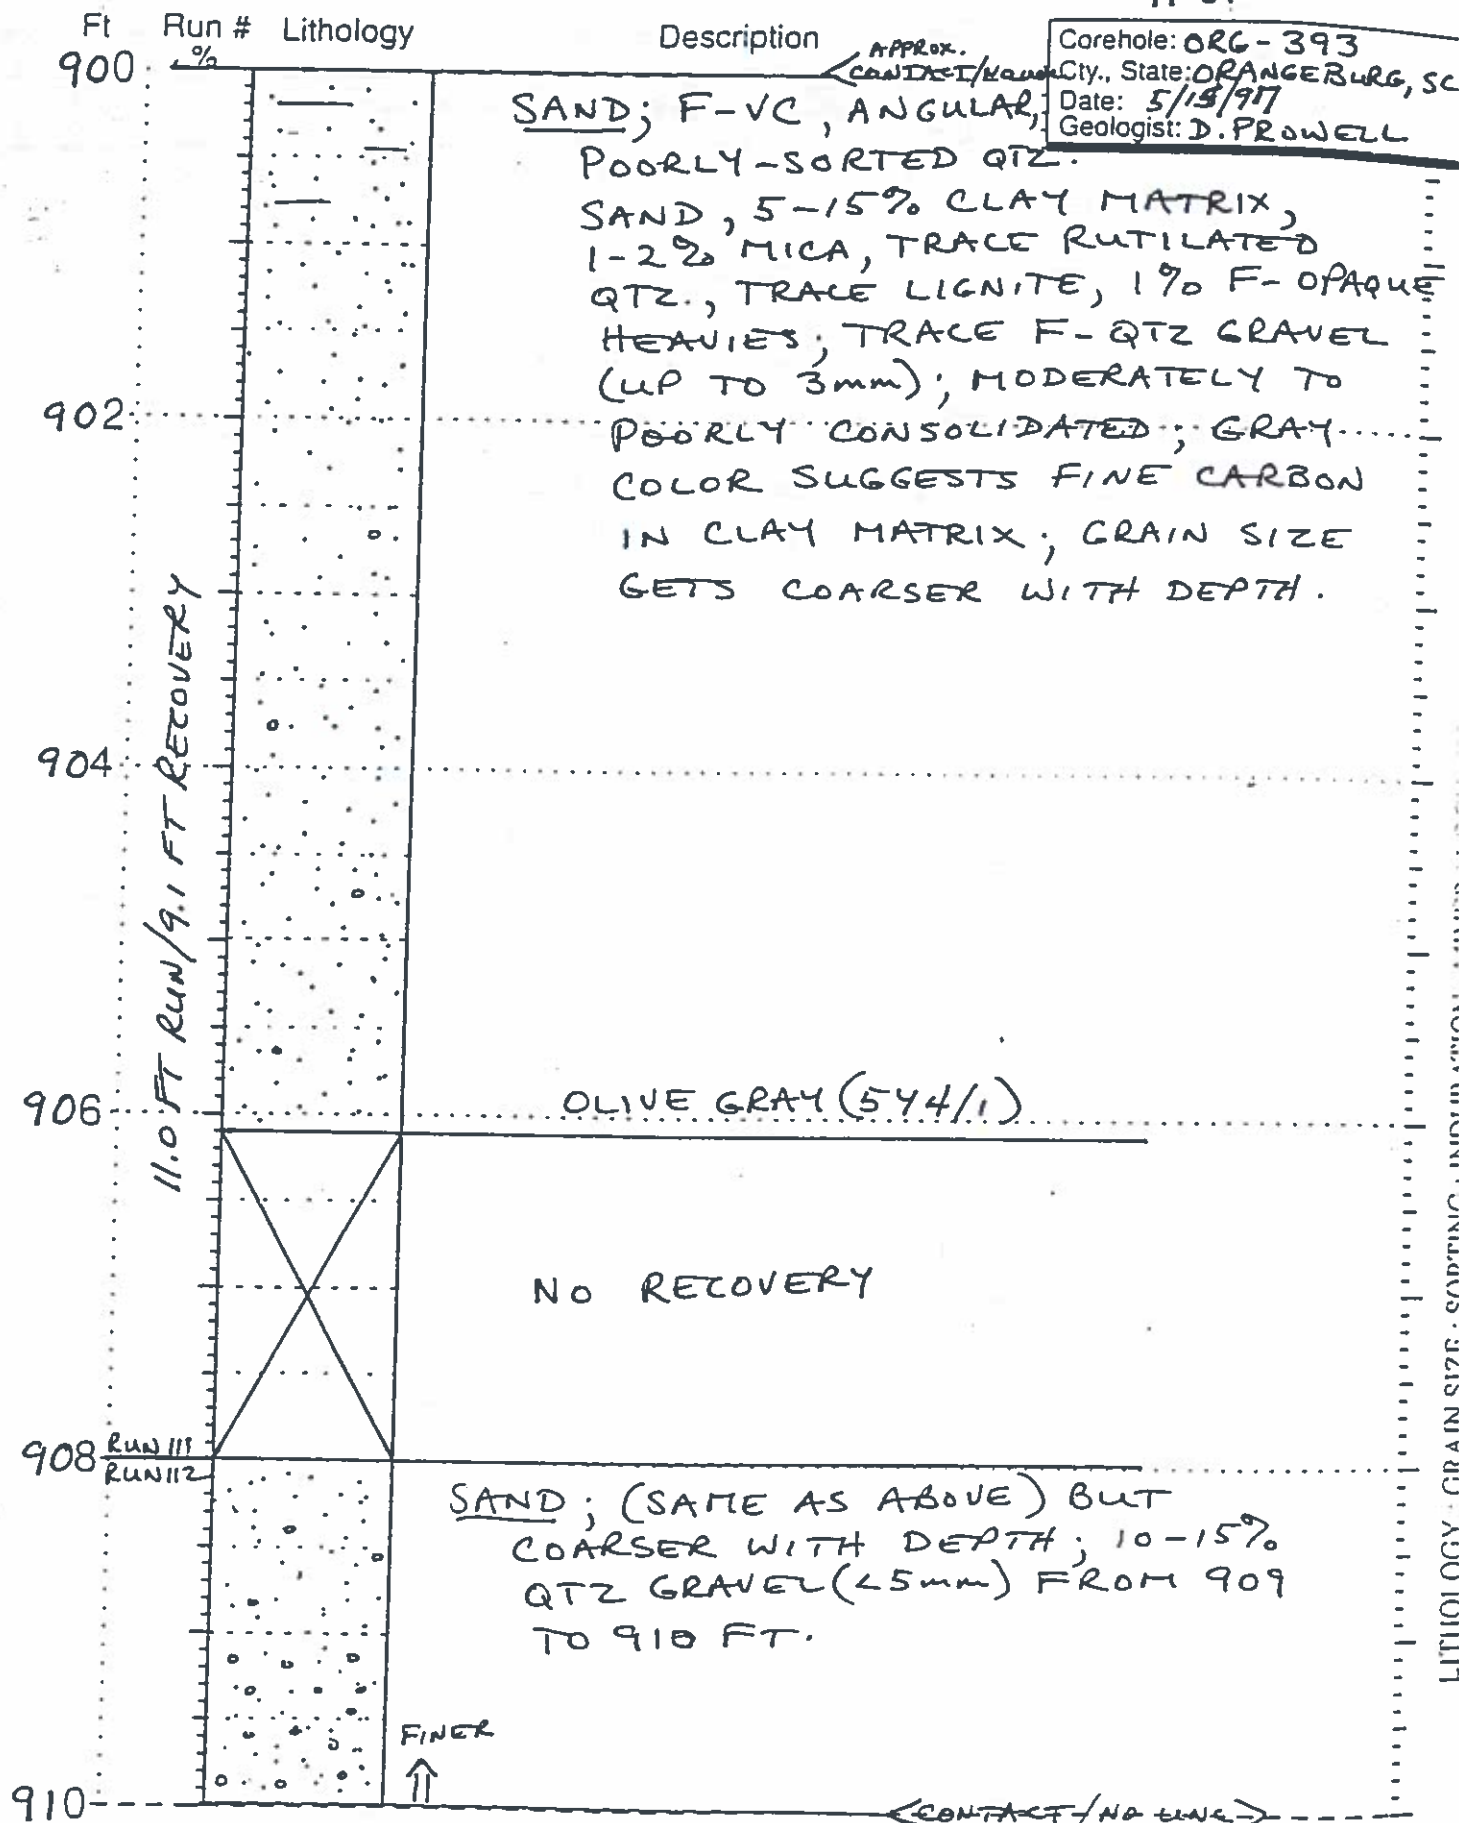 Ft Run # Lithology Description
%
Corehole: ORG-393
Cty., State: ORANGEBURG, SC
Date: 5/15/97
Geologist: D. PROWELL
900
APPROX.
CONTACT/
SAND; F-VC, ANGULAR,
POORLY-SORTED QTZ.
SAND, 5-15% CLAY MATRIX,
1-2% MICA, TRACE RUTILATED
QTZ., TRACE LIGNITE, 1% F-OPAQUE
HEAVIES; TRACE F-QTZ GRAVEL
(UP TO 3mm); MODERATELY TO
902
POORLY CONSOLIDATED; GRAY
COLOR SUGGESTS FINE CARBON
IN CLAY MATRIX; GRAIN SIZE
GETS COARSER WITH DEPTH.
11.0 FT RUN/9.1 FT RECOVERY
904
906
OLIVE GRAY (5Y4/1)
NO RECOVERY
908
RUN 111
RUN 112
SAND; (SAME AS ABOVE) BUT
COARSER WITH DEPTH; 10-15%
QTZ GRAVEL (<5mm) FROM 909
TO 910 FT.
FINER
910
CONTACT/NO
LITHOLOGY · GRAIN SIZE · SORTING · INDURATION